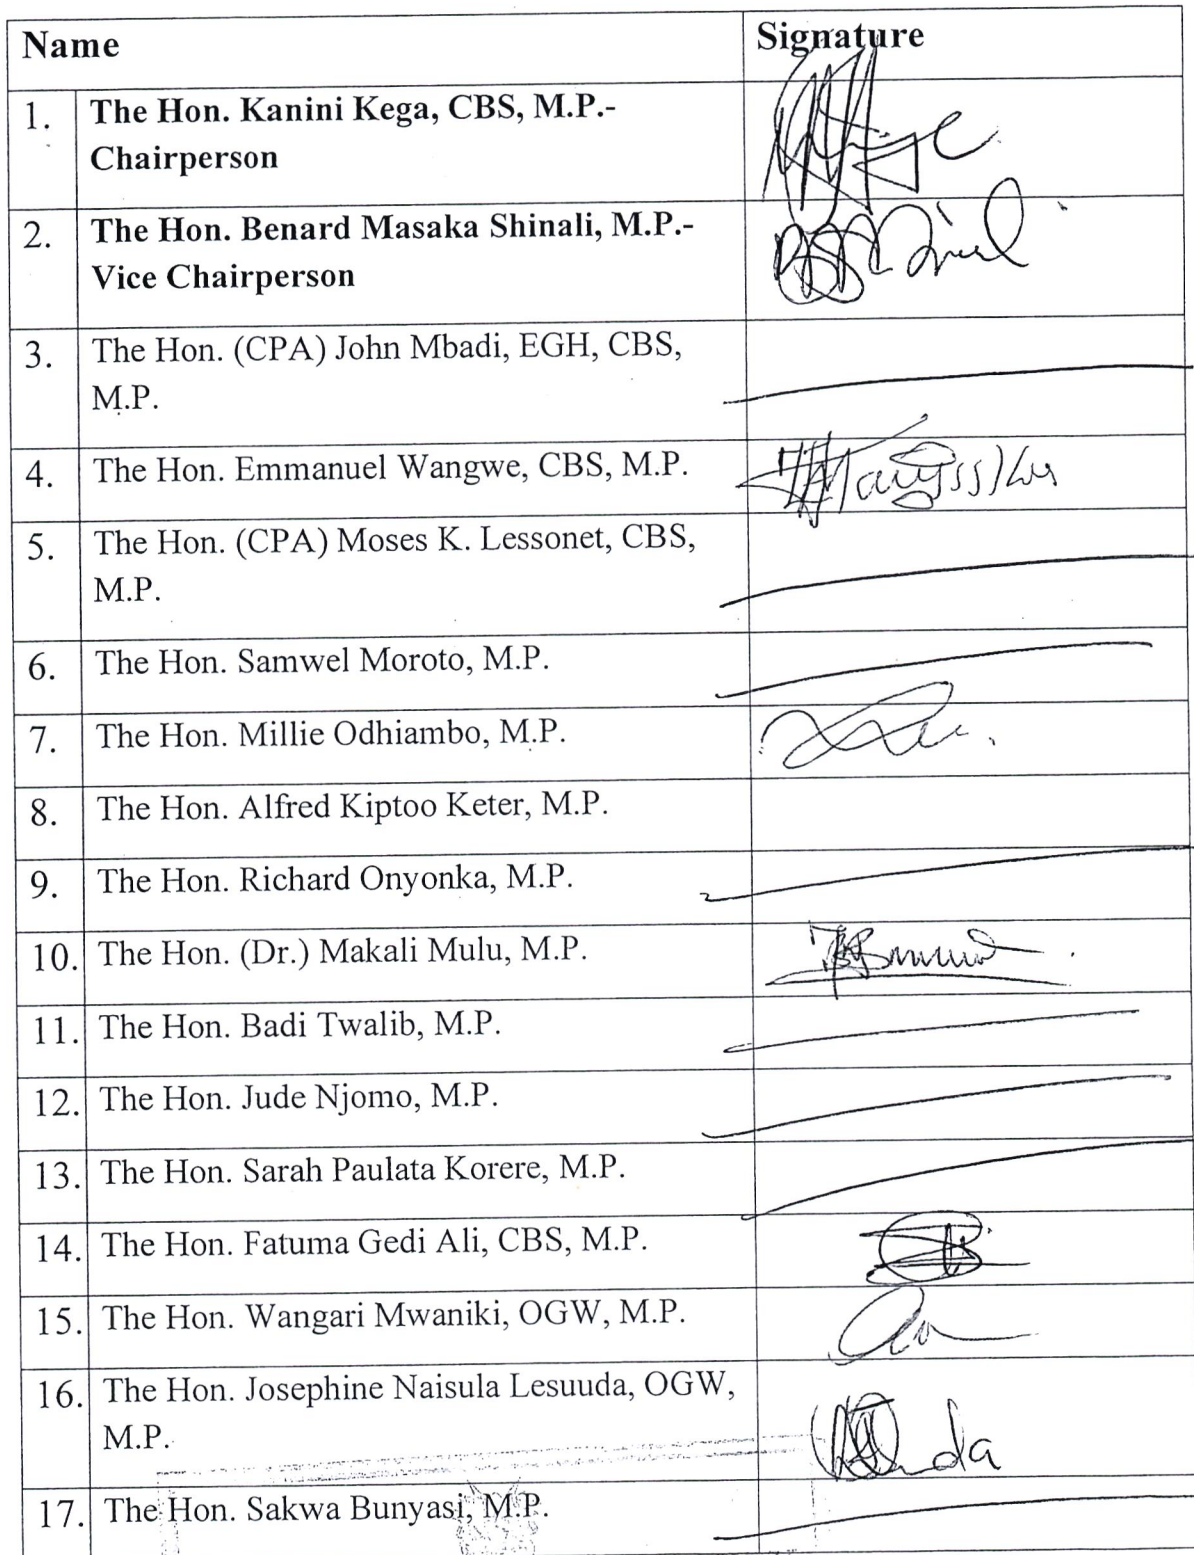 Name Signature
1. The Hon. Kanini Kega, CBS, M.P.-
Chairperson
2. The Hon. Benard Masaka Shinali, M.P.-
Vice Chairperson
3. The Hon. (CPA) John Mbadi, EGH, CBS,
M.P.
4. The Hon. Emmanuel Wangwe, CBS, M.P.
5. The Hon. (CPA) Moses K. Lessonet, CBS,
M.P.
6. The Hon. Samwel Moroto, M.P.
7. The Hon. Millie Odhiambo, M.P.
8. The Hon. Alfred Kiptoo Keter, M.P.
9. The Hon. Richard Onyonka, M.P.
10. The Hon. (Dr.) Makali Mulu, M.P.
11. The Hon. Badi Twalib, M.P.
12. The Hon. Jude Njomo, M.P.
13. The Hon. Sarah Paulata Korere, M.P.
14. The Hon. Fatuma Gedi Ali, CBS, M.P.
15. The Hon. Wangari Mwaniki, OGW, M.P.
16. The Hon. Josephine Naisula Lesuuda, OGW,
M.P.
17. The Hon. Sakwa Bunyasi, M.P.